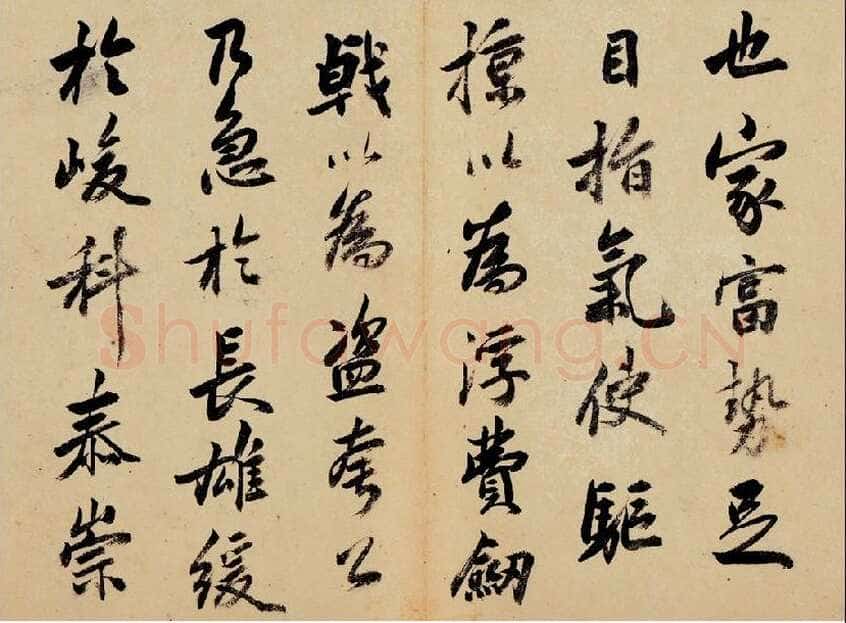 也家富勢足
目指氣使驅
掠以為浮費劔
戟以為盜夸公
乃急於長雄緩
於峻科泰崇
Shufawang.CN